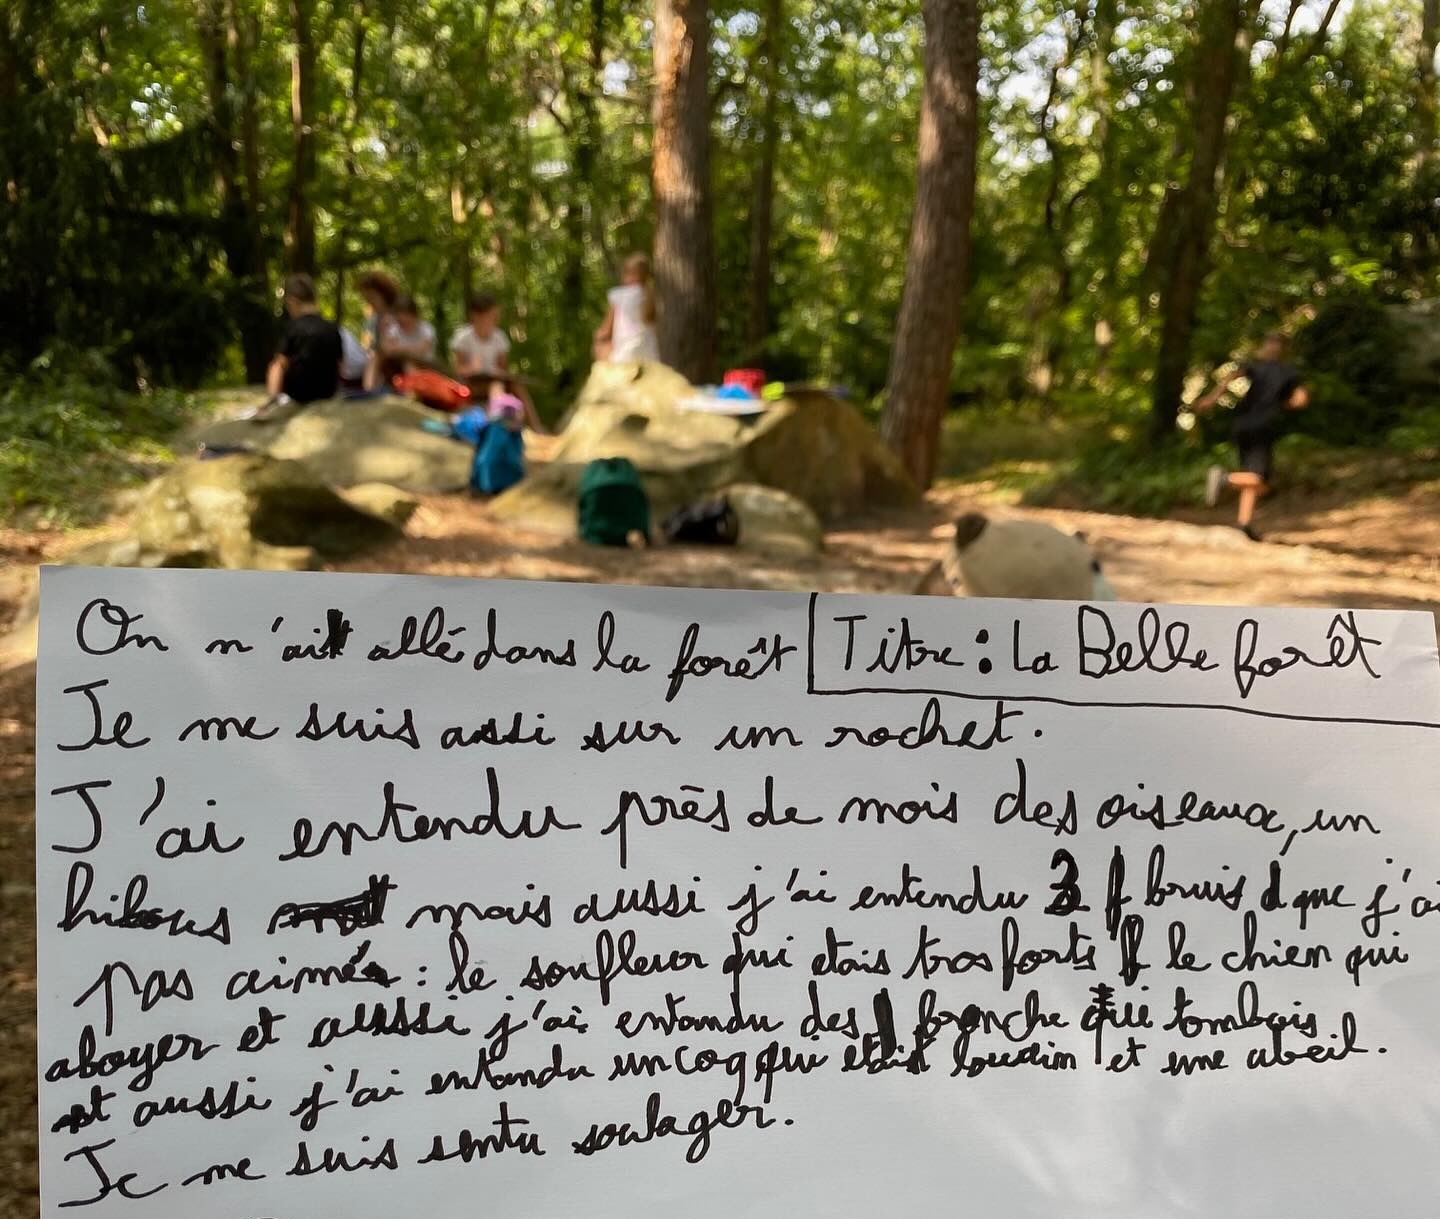 On n'ait allé dans la forêt
Titre : La Belle forêt
Je me suis assi sur un rochet.
J'ai entendu près de mois des oiseaux, un
hibous mais aussi j'ai entendu 3 bruis que j'ai
pas aimé : le soufleur qui étais tros forts le chien qui
aboyer et aussi j'ai entandu des branche qui tombais
et aussi j'ai entandu un coq qui était loudin et une abeil.
Je me suis sentu soulager.